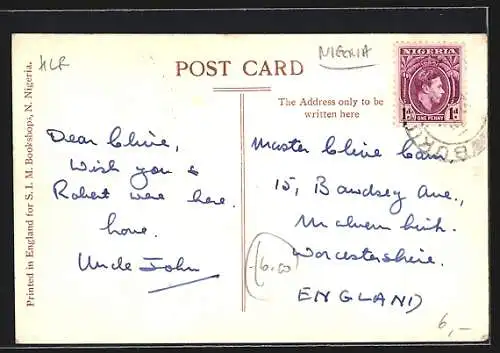 HLR
NIGERIA
POST CARD
NIGERIA
1d ONE PENNY 1d
BURU
The Address only to be
written here
Printed in England for S. I. M. Bookshops, N. Nigeria.
Dear Clive,
Wish you &
Robert were here.
Love.
Uncle John
Master Clive
15, Bawdsey Ave.,
Malvern link.
Worcestershire.
ENGLAND
6.00
6,-